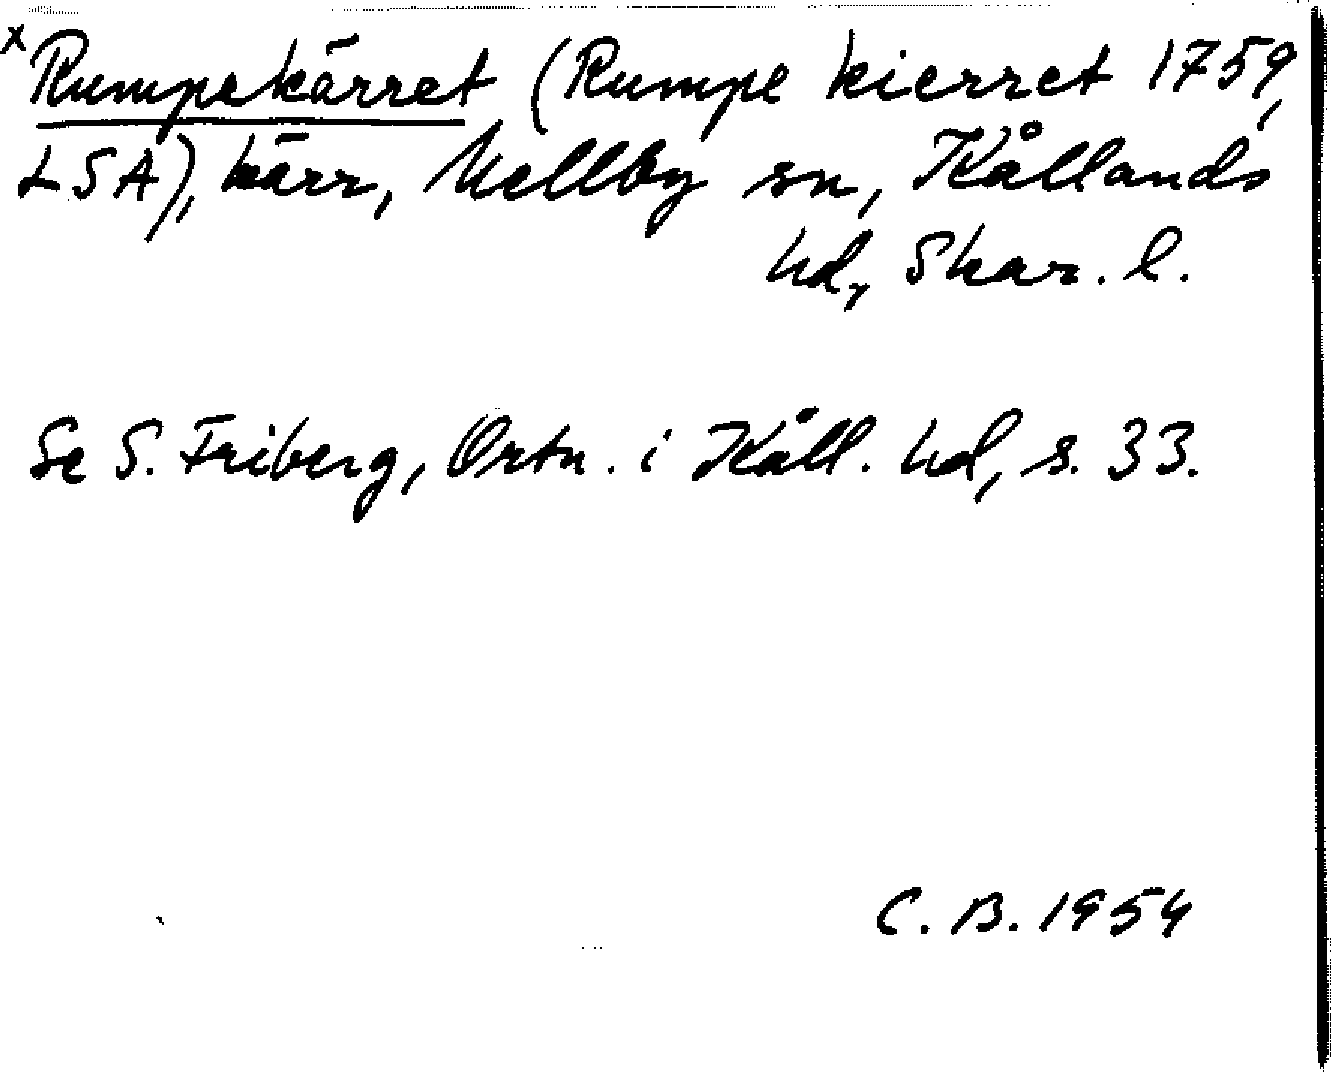 x Rumpekärret (Rumpe kierret 1759,
LSA), kärr, Mellby sn, Kållands
hd, Skar. l.
Se S. Friberg, Ortn. i Kåll. hd, s. 33.
C. B. 1954